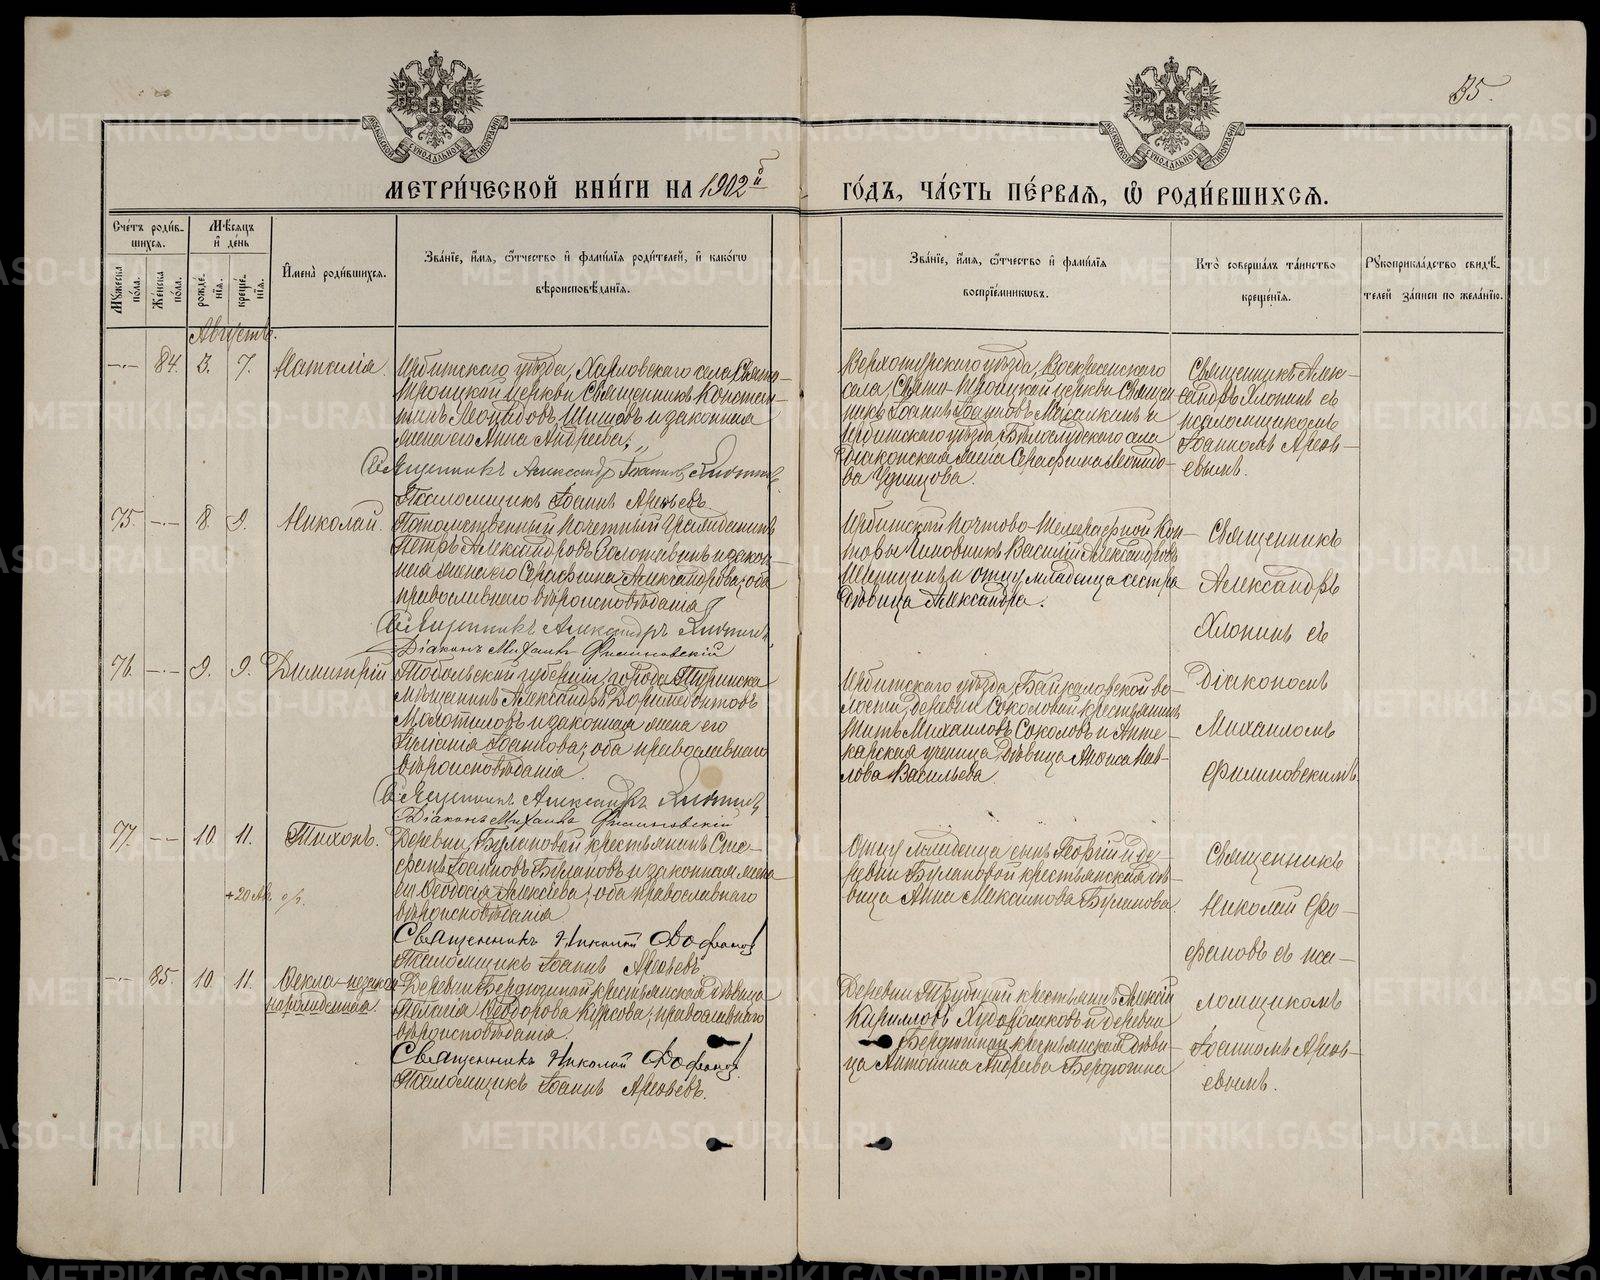 35.
МОСКОВСКОЙ СѴНОДАЛЬНОЙ ТИПОГРАФІИ
МОСКОВСКОЙ СѴНОДАЛЬНОЙ ТИПОГРАФІИ
МЕТРИ́ЧЕСКОЙ КНИ́ГИ НА 1902й
ГО́ДЪ, ЧА́СТЬ ПЕ́РВАЯ, Ѡ РОДИ́ВШИХСЯ.
Сче́тъ роди́в-
шихся.
Мѣ́сяцъ
и҆ де́нь
Му́жеска по́ла.
Же́нска по́ла.
рожде́-
нїя.
креще́-
нїя.
И҆мена̀ роди́вшихся.
Зва́нїе, и҆́мя, ѻ҆́тчество и҆ фами́лїя роди́телей, и҆ како́гѡ
вѣроисповѣ́данїя.
Зва́нїе, и҆́мя, ѻ҆́тчество и҆ фами́лїя
воспрїе́мникѡвъ.
Кто̀ соверша́лъ та́инство
креще́нїя.
Рꙋкоприкла́дство свидѣ́-
телей за́писи по жела́нїю.
Августъ.
-·- 84. 3. 7. Наталія.
Ирбитскаго уѣзда, Харловскаго села, Свято-
Троицкой церкви Священникъ Констан-
тинъ Леонидовъ Шишовъ и законная
жена его Анна Андреева;
Священникъ Александръ Іоанновъ Хлопинъ
Псаломщикъ Іоаннъ Арефьевъ.
Верхотурскаго уѣзда, Воскресенскаго
села, Свято-Троицкой церкви Священ
никъ Іоаннъ
Ирбитскаго уѣзда, Бѣлослудскаго села
Діаконская жена Серафима Леонидо-
ва Удинцова.
Священникъ Алек-
сандръ Хлопинъ съ
псаломщикомъ
Іоанномъ Арефь-
евымъ.
75. -·- 8. 9. Николай.
Потомственный Почетный Гражданинъ
Петръ Александровъ и закон-
ная жена его Серафима Александрова; оба
православнаго вѣроисповѣданія
Священникъ Александръ Хлопинъ
Діаконъ Михаилъ Филиповскій
Ирбитской Почтово-Телеграфной Кон-
торы Чиновникъ Василій Александровъ
и отцу младенца сестра
Дѣвица Александра.
Священникъ
Александръ
Хлопинъ съ
76. -·- 9. 9. Димитрій
Тобольской губерніи, города Туринска
мѣщанинъ Александръ Доримедонтовъ
Молотиловъ и законная жена его
Іуліанія Іоаннова; оба православнаго
вѣроисповѣданія.
Священникъ Александръ Хлопинъ
Діаконъ Михаилъ Филиповскій
Ирбитскаго уѣзда, Байкаловской во-
лости, деревни Соколовой крестьянинъ
Титъ Михаиловъ Соколовъ и Апте-
карская ученица Дѣвица Анфиса Пав-
лова Васильева.
Діакономъ
Михаиломъ
Филиповскимъ.
77. -- 10. 11. Тихонъ.
+20 Ав.
Деревни Булановой крестьянинъ Сте-
фанъ Іоанновъ Булановъ и законная жена
его Ѳеодосія Алексѣева; оба православнаго
вѣроисповѣданія
Священникъ Николай
Псаломщикъ Іоаннъ Арефьевъ.
Отцу младенца сынъ Георгій и де-
ревни Булановой крестьянская дѣ-
вица Анна Максимова Буланова.
Священникъ
Николай
съ пса-
-·- 85. 10. 11. Ѳекла-незакон-
норожденная.
Деревни Бердюгиной крестьянская дѣвица
Пелагія Ѳеодорова Курсова; православнаго
вѣроисповѣданія.
Священникъ Николай
Псаломщикъ Іоаннъ Арефьевъ.
Деревни крестьянинъ Алексій
Кирилловъ и деревни
Бердюгиной крестьянская дѣви-
ца Антонина Андреева Бердюгина
ломщикомъ
Іоанномъ Арефь-
евымъ.
METRIKI.GASO-URAL.RU